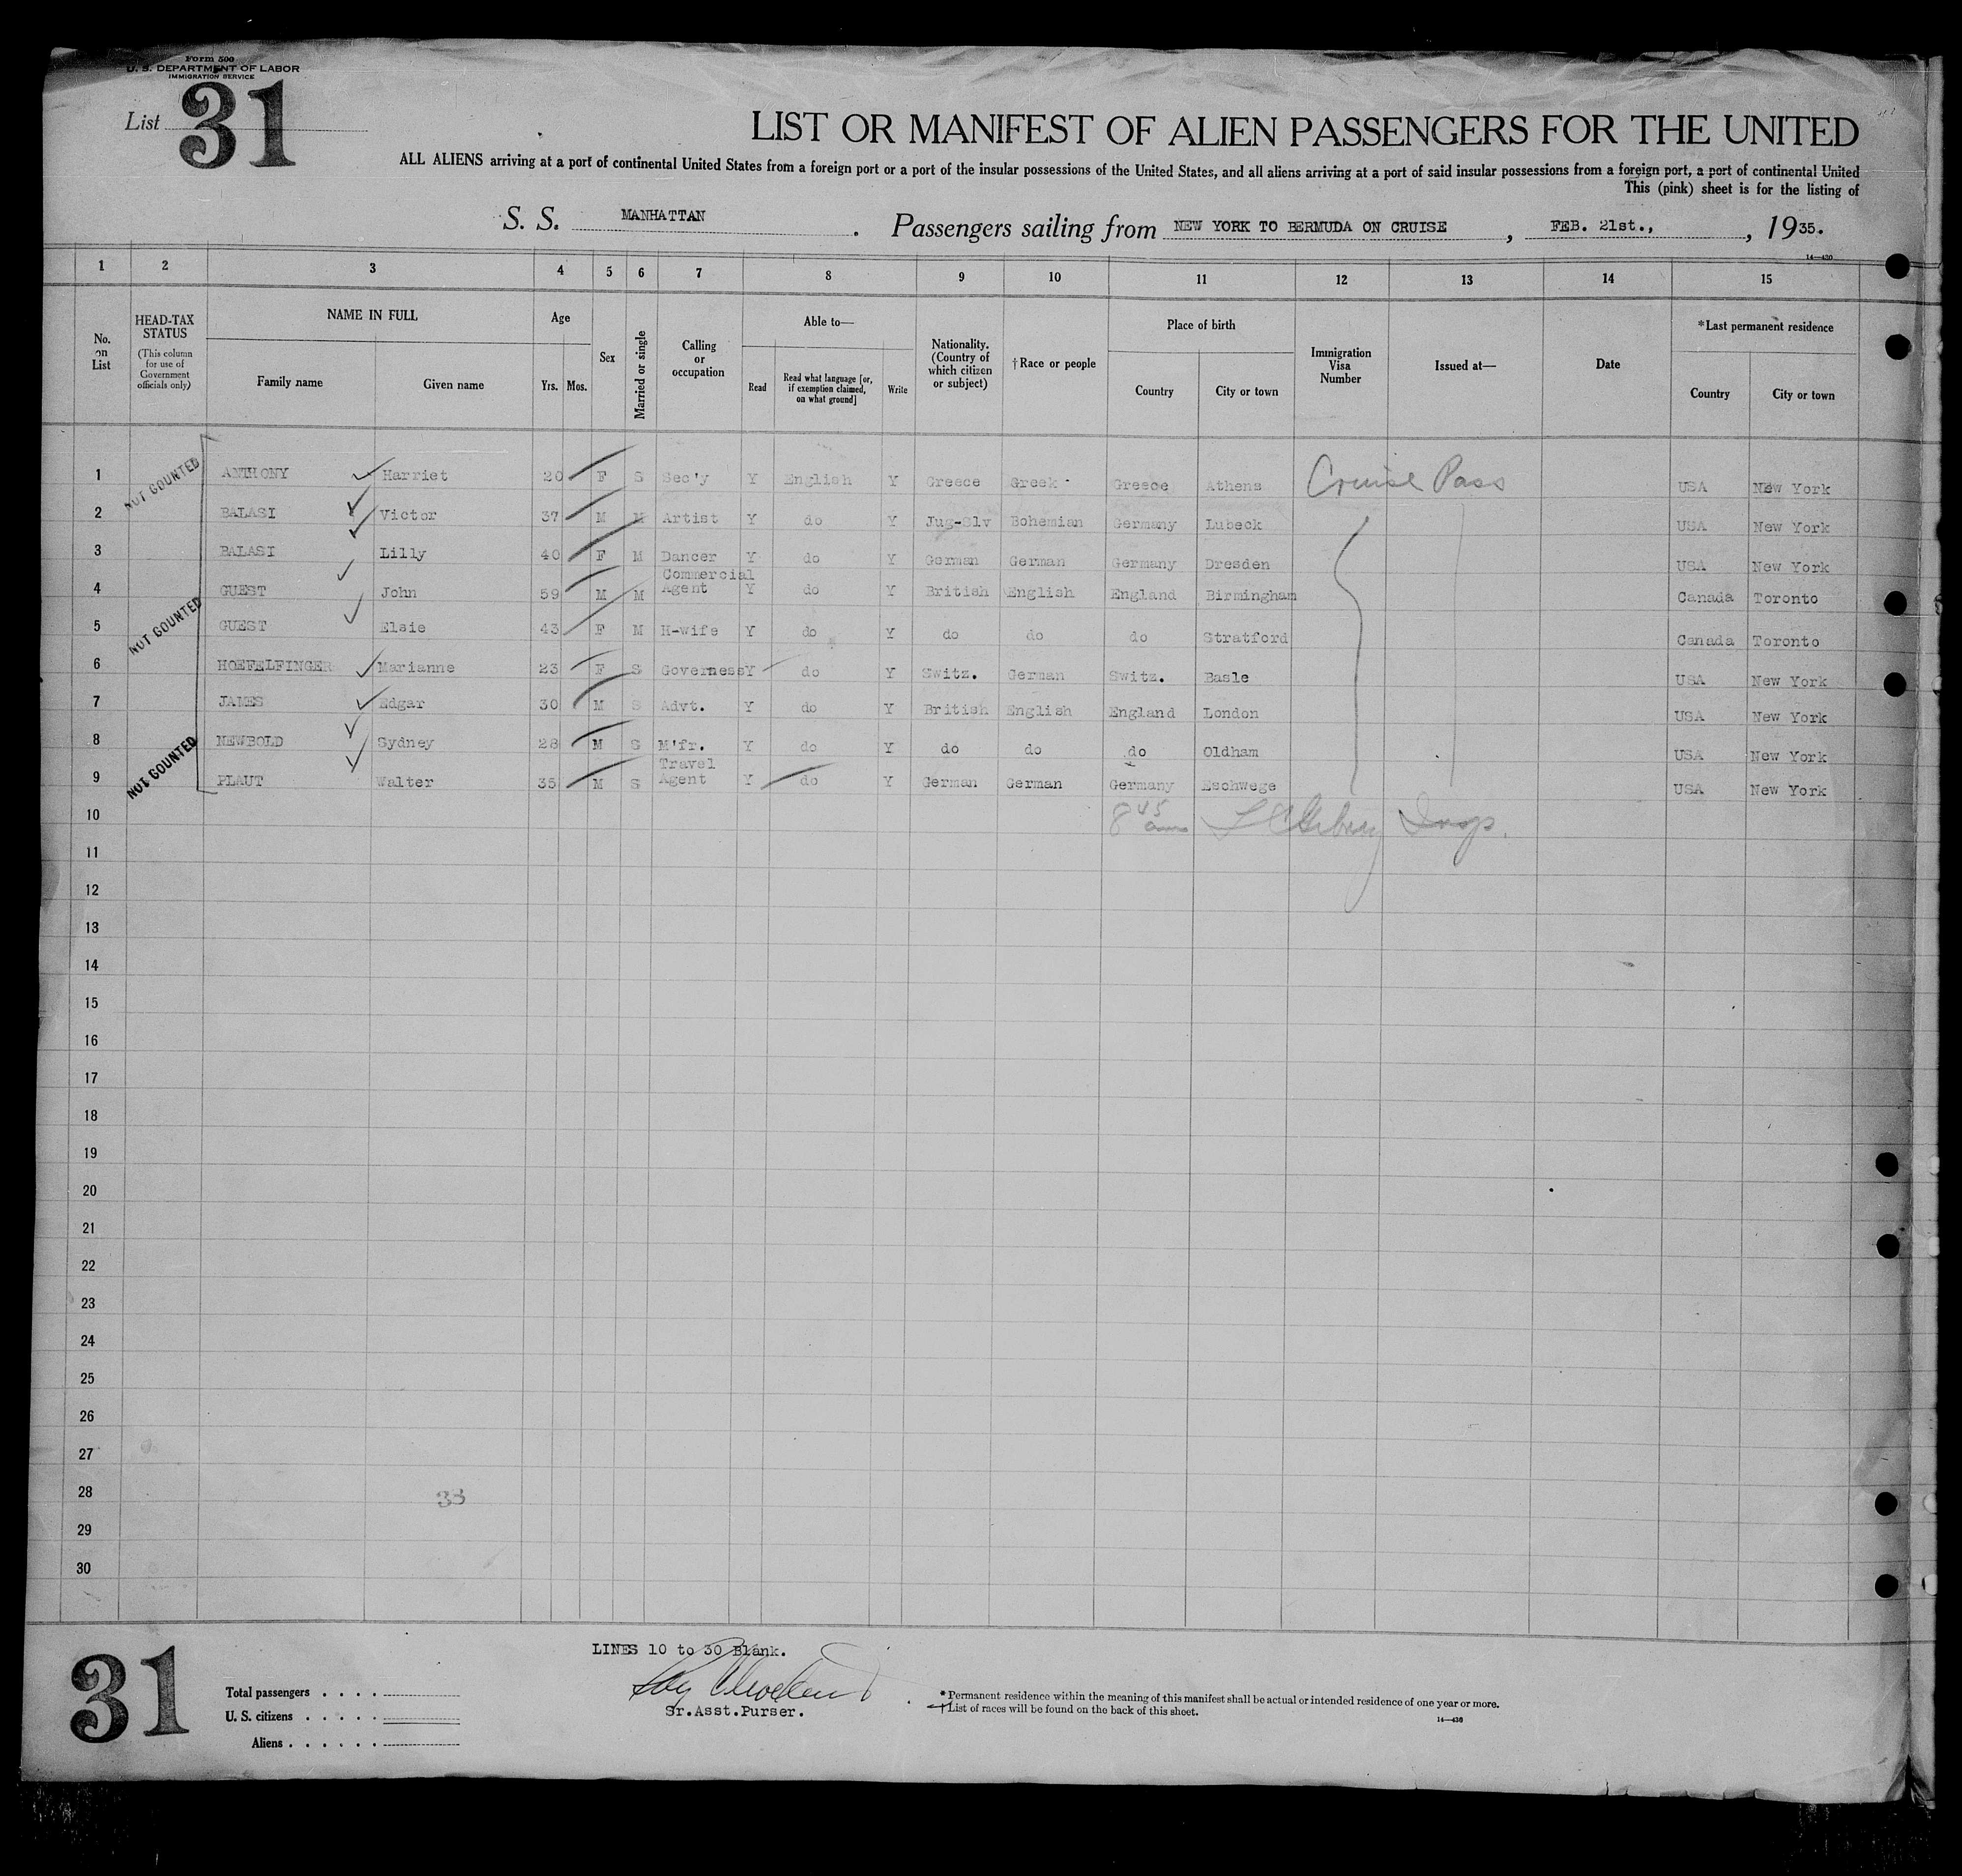 Form 500
U. S. DEPARTMENT OF LABOR
IMMIGRATION SERVICE
List 31
LIST OR MANIFEST OF ALIEN PASSENGERS FOR THE UNITED
ALL ALIENS arriving at a port of continental United States from a foreign port or a port of the insular possessions of the United States, and all aliens arriving at a port of said insular possessions from a foreign port, a port of continental United
This (pink) sheet is for the listing of
S. S. MANHATTAN . Passengers sailing from NEW YORK TO BERMUDA ON CRUISE , FEB. 21st., , 1935.
14—430
1 2 3 4 5 6 7 8 9 10 11 12 13 14 15
No. on List
HEAD-TAX STATUS
(This column for use of Government officials only)
NAME IN FULL
Family name Given name
Age
Yrs. Mos.
Sex
Married or single
Calling or occupation
Able to—
Read
Read what language [or, if exemption claimed, on what ground]
Write
Nationality. (Country of which citizen or subject)
†Race or people
Place of birth
Country City or town
Immigration Visa Number
Issued at—
Date
*Last permanent residence
Country City or town
NOT COUNTED
1 ANTHONY Harriet 20 F S Sec'y Y English Y Greece Greek Greece Athens Cruise Pass USA New York
2 BALASI Victor 37 M M Artist Y do Y Jug-Slv Bohemian Germany Lubeck USA New York
3 BALASI Lilly 40 F M Dancer Y do Y German German Germany Dresden USA New York
4 GUEST John 59 M M Commercial Agent Y do Y British English England Birmingham Canada Toronto
NOT COUNTED
5 GUEST Elsie 43 F M H-wife Y do Y do do do Stratford Canada Toronto
6 HOEFELFINGER Marianne 23 F S Governess Y do Y Switz. German Switz. Basle USA New York
7 JAMES Edgar 30 M S Advt. Y do Y British English England London USA New York
8 NEWBOLD Sydney 28 M S M'fr. Y do Y do do do Oldham USA New York
NOT COUNTED
9 PLAUT Walter 35 M S Travel Agent Y do Y German German Germany Eschwege USA New York
10 8 45 am Insp.
11
12
13
14
15
16
17
18
19
20
21
22
23
24
25
26
27
28 33
29
30
LINES 10 to 30 Blank.
Sr.Asst.Purser.
31
Total passengers
U. S. citizens
Aliens
* Permanent residence within the meaning of this manifest shall be actual or intended residence of one year or more.
†List of races will be found on the back of this sheet.
14—430